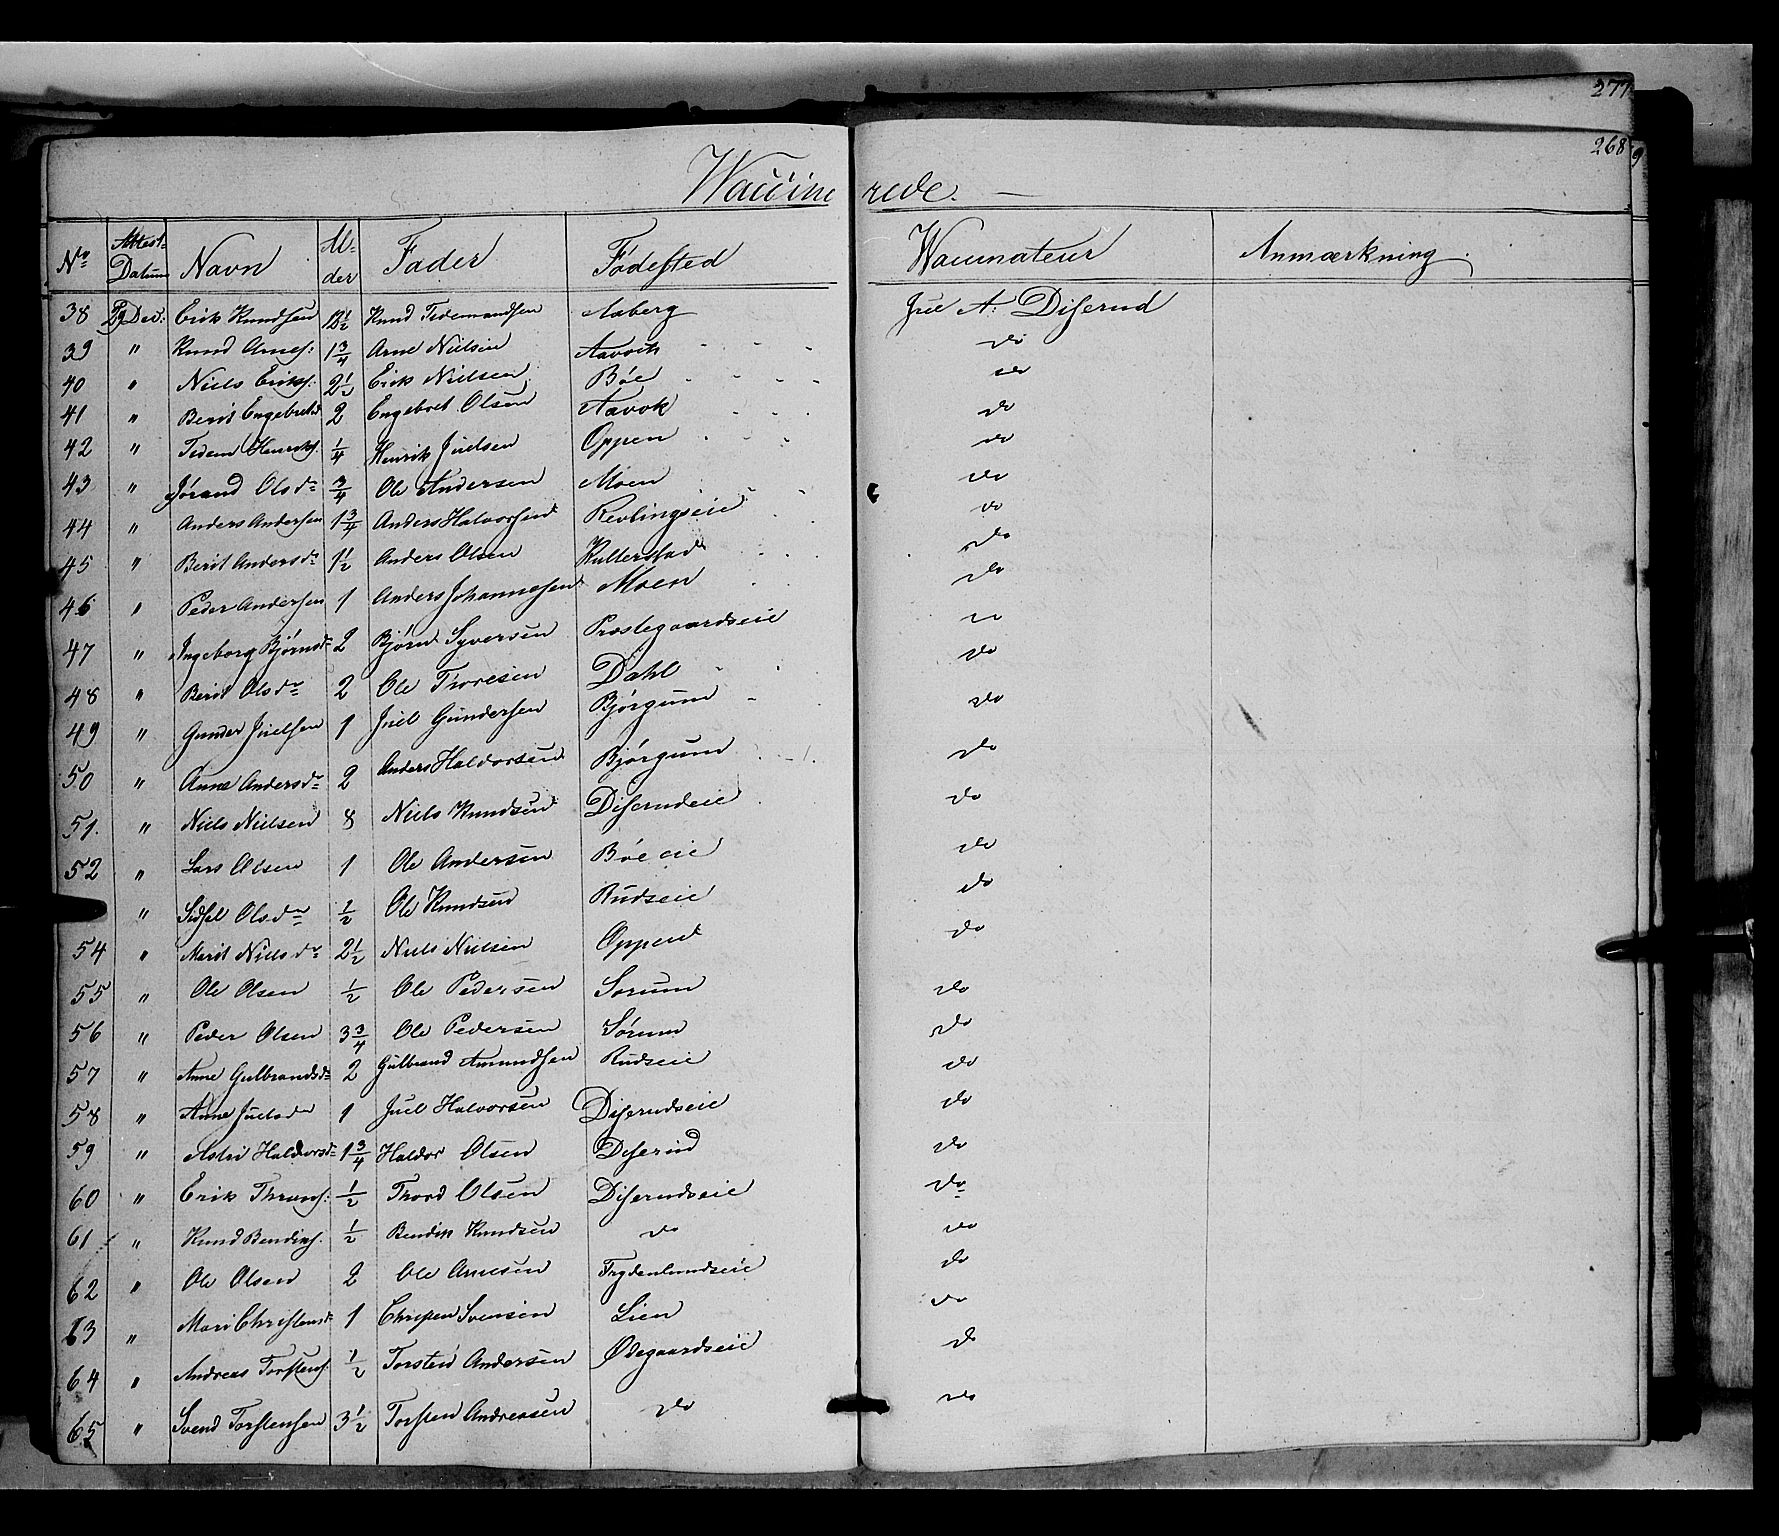 277
268
Waccinerede. —
No Attest-Datum Navn Al-der Fader Fødested Waccinateur Anmærkning.
38 29 Dec: Erik Knudsen 1½ Knud Tidemandsen Aaberg Juel A. Diserud
39 " Knud Arnes: 1¾ Arne Nielsen Aavok do
40 " Niels Eriks: 2½ Erik Nielsen Bøe do
41 " Berit Engebretsd 2 Engebret Olsen Aavok do
42 " Tidem Henriks. ¼ Henrik Juelsen Oppen do
43 " Jørand Olsdr ¾ Ole Andersen Moen do
44 " Anders Andersen 1¾ Anders Halvorsen Revlingseie do
45 " Berit Andersdr 1½ Anders Olsen Kulterstad do
46 " Peder Andersen 1 Anders Johannesen Moen do
47 " Ingeborg Bjørnsdr 2 Bjørn Syversen Præstegaardseie "
48 " Berit Olsdr 2 Ole Thoresen Dahl do
49 " Gunder Juelsen 1 Juel Gundersen Bjørgum do
50 " Anne Andersdr 2 Anders Haldorsen Bjørgum do
51. " Niels Nielsen 8 Niels Knudsen Diserudeie do
52 " Lars Olsen 1 Ole Andersen Bøe eie do
" Sidsel Olsdr ½ Ole Knudsen Rudseie do
54 " Marit Nielsdr 2½ Niels Nielsen Oppen do
55 " Ole Olsen ½ Ole Pedersen Sorum do
56 " Peder Olsen 3¾ Ole Pedersen Sørum do
57 " Anne Gulbrandsdr 2 Gulbrand Amundsen Rudseie do
58 " Anne Juelsdr 1 Juel Halvorsen Diserudseie do
59 " Astri Haldorsdr 1¾ Haldor Olsen Diserud do
60 " Erik Thords: ½ Thord Olsen Diserudseie do
61 " Knud Bendiks. ½ Bendik Knudsen do do
62 " Ole Olsen 2 Ole Arnesen Frydenlundseie do
63 " Mari Christensdr 1 Christen Svensen Lien do
64 " Andreas Torstens. ½ Torsten Andersen Ødegaardseie do
65 " Svend Torstensen 3½ Torsten Andreasen do do